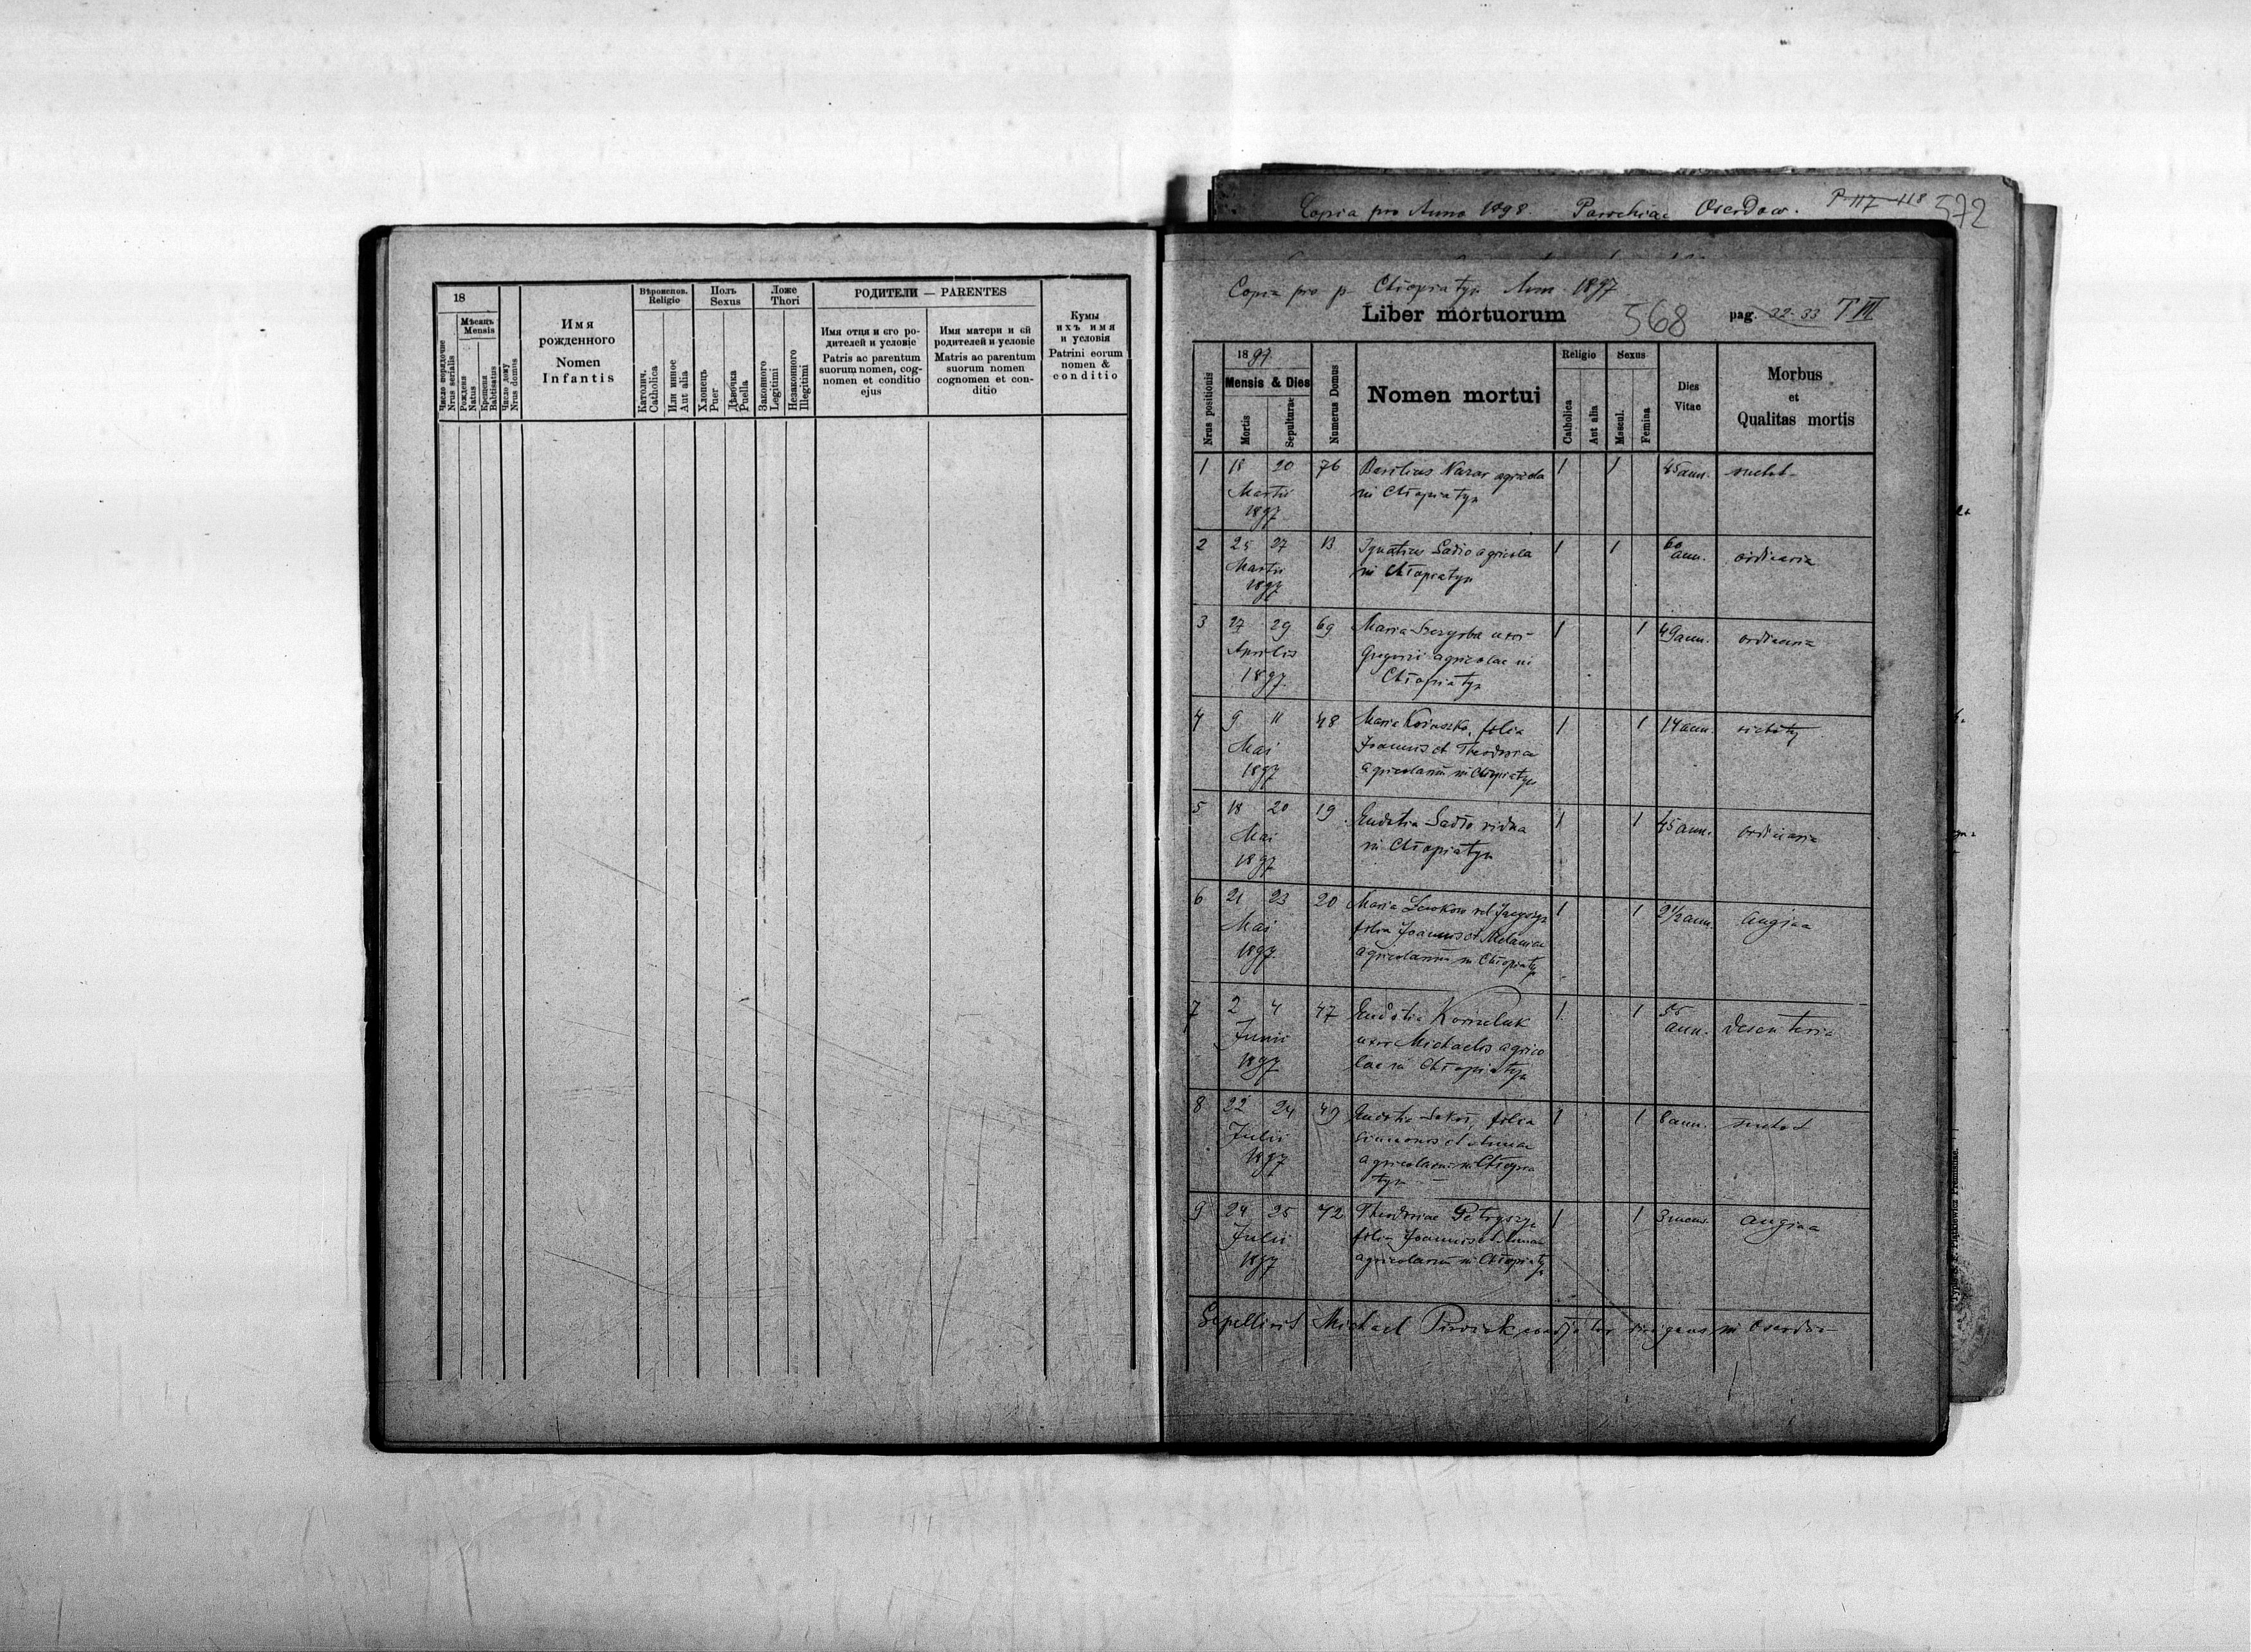 Copia pro Anno 1898. Parochiae Oserdow. P 117-118 572
18
Мѣсяць
Mensis
Число порядочне
Nrus serialis
Рожденя
Natus
Крещеня
Babtisatus
Число дому
Nrus domus
Имя
рожденного
Nomen
Infantis
Вѣроиспов.
Religio
Католич.
Catholica
Или иншое
Aut alia
Полъ
Sexus
Хлопець
Puer
Дѣвочка
Puella
Ложе
Thori
Законного
Legitimi
Незаконного
Illegitimi
РОДИТЕЛИ — PARENTES
Имя отця и єго ро-
дителей и условіє
Patris ac parentum
suorum nomen, cog-
nomen et conditio
ejus
Имя матери и єй
родителей и условіє
Matris ac parentum
suorum nomen
cognomen et con-
ditio
Кумы
ихъ имя
и условія
Patrini eorum
nomen &
conditio
Copia pro p. Chłopiatyn Ann. 1897
Liber mortuorum 568 pag. 32-33 T III
Nrus positionis
1897.
Mensis & Dies
Mortis
Sepulturae
Numerus Domus
Nomen mortui
Religio
Catholica
Aut alia
Sexus
Mascul.
Femina
Dies
Vitae
Morbus
et
Qualitas mortis
1 18 20 76 Basilius Nazar agricola 1 1 45 ann.
Martii in Chłopiatyn
1897
2 25 27 13 Ignatius Sadło agricola 1 1 60 ann. ordinaria
Martii in Chłopiatyn
1897
3 27 29 69 Maria Szczyrba uxor 1 1 49 ann. ordinaria
Aprilis Gregorii agricolae in
1897. Chłopiatyn
4 9 11 48 Maria filia 1 1 14 ann.
Mai Joannis et Theodorae
1897 agricolarum in Chłopiatyn
5 18 20 19 Eudotia Sadło vidua 1 1 45 ann. ordinaria
Mai in Chłopiatyn
1897
6 21 23 20 Maria 1 1 2 1/2 ann. angina
Mai filia Joannis et Melaniae
1897. agricolarum in Chłopiatyn
7 2 4 47 Eudotia Korneluk 1 1 55 ann. desenteria
Junii uxor Michaelis agrico
1897 lae in Chłopiatyn
8 22 24 49 Eudotia filia 1 1 8 ann.
Julii Simeonis et Annae
1897 agricolarum in Chłopia
tyn
9 24 25 72 Theodorae Petryszyn 1 1 3 mens. angina
Julii filia Joannis et Annae
1897 agricolarum in Chłopiatyn
Sepelivit Michael coadjutor in Oserdow